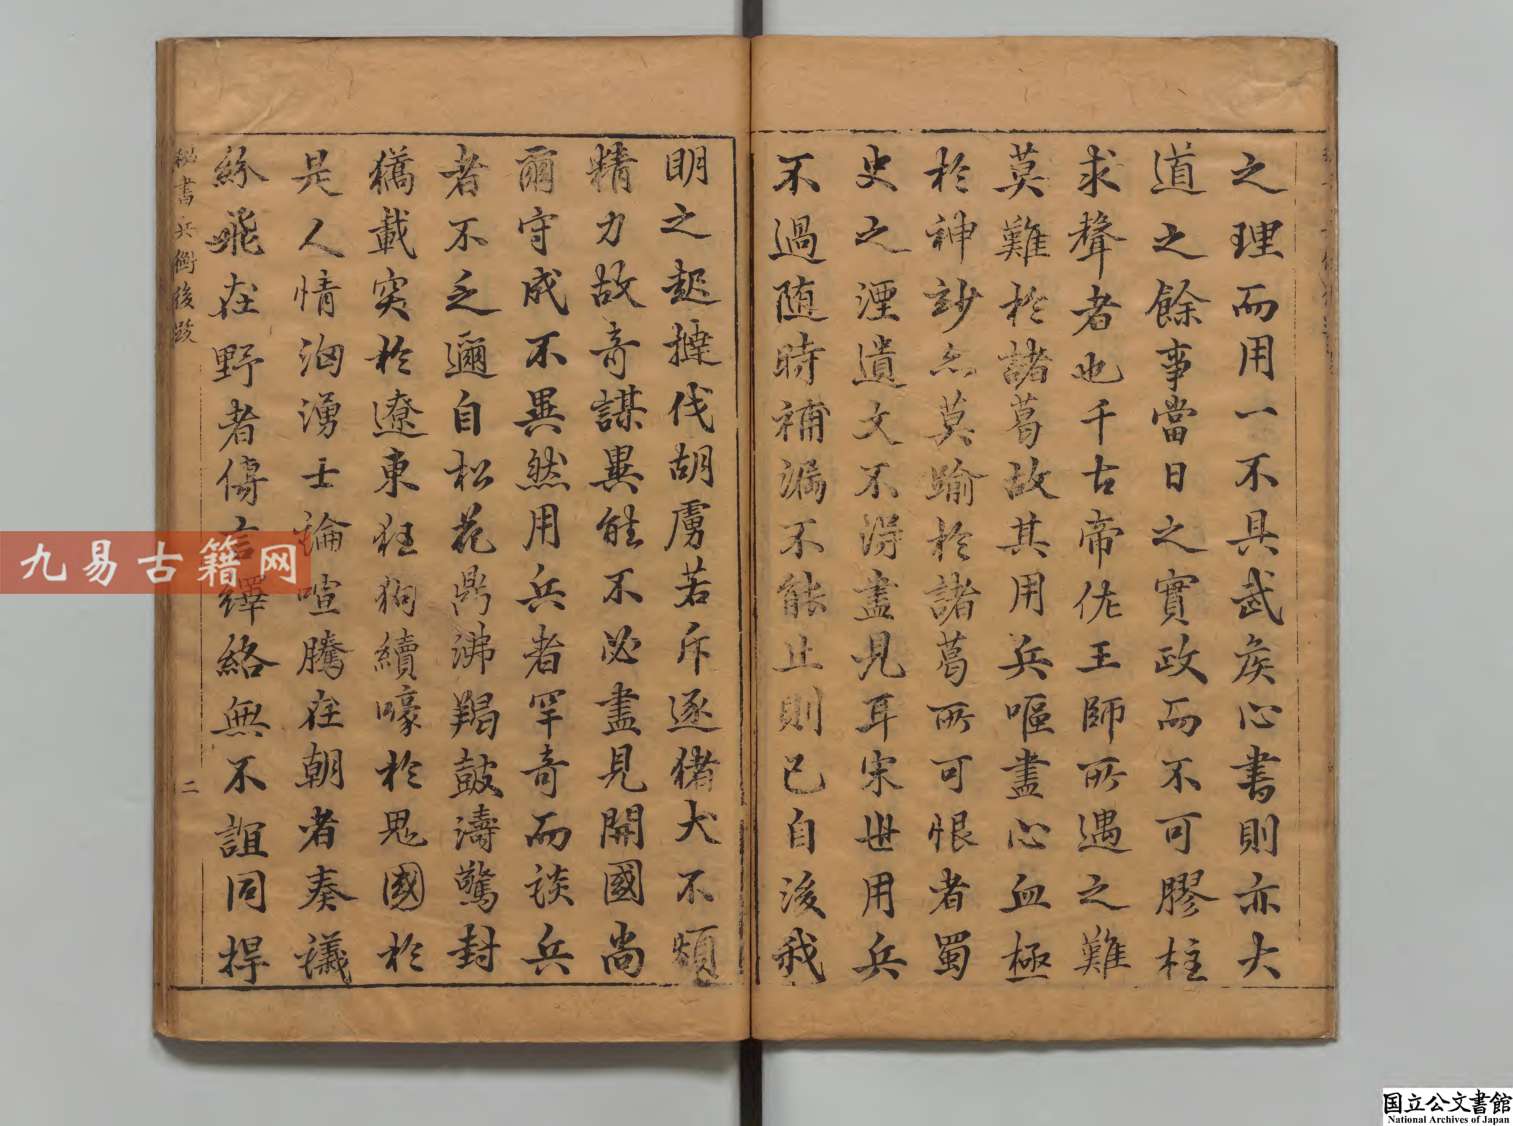 之理而用一不具武矦心書則亦大
道之餘事當日之實政而不可膠柱
求聲者也千古帝佐王師所遇之難
莫難於諸葛故其用兵嘔盡心血極
於神玅亦莫踰於諸葛所可恨者蜀
史之湮遺文不得盡見耳宋世用兵
不過随時補漏不能止則已自後我
明之起撻伐胡虜若斥逐猪犬不煩
精力故竒謀異能不必盡見開國尚
爾守成不異然用兵者罕竒而談兵
者不乏邇自松花鼎沸羯鼓濤驚封
獝載突於遼東狂狗續嚎於鬼國於
是人情洶湧士論喧騰在朝者奏議
紛飛在野者傳言繹絡無不誼同捍
秘書兵衡後跋
二
九易古籍网
国立公文書館
National Archives of Japan